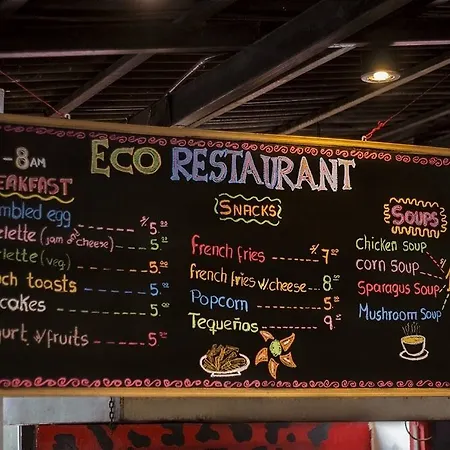 - 8 AM
ECO RESTAURANT
EAKFAST
mbled egg ---- $/ 5.00
elette (jam and cheese) -- 5.00
rlette (veg) ---- 5.00
nch toasts ---- 5.00
cakes ---- 5.00
gurt w/fruits ---- 5.00
SNACKS
French fries ---- $/ 7.00
french fries w/cheese --- 8.00
Popcorn ---- 5.00
Tequeños ---- 9.00
SOUPS
Chicken soup
corn soup
Sparagus soup
Mushroom soup